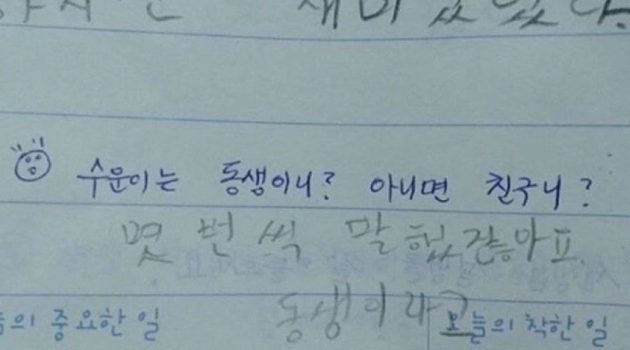 재미있었다.
수운이는 동생이니? 아니면 친구니?
몃 번 씩 말 했잖아요.
동생이라고
의 중요한 일 오늘의 착한 일